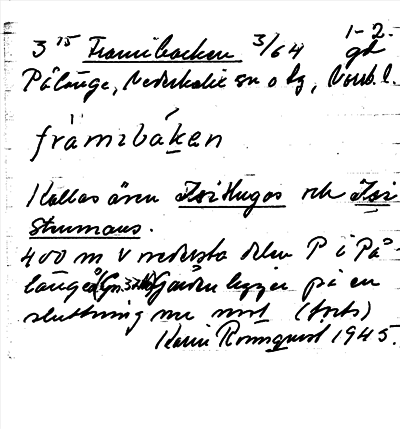 3 15 Framibacken 3/64 1-2. gd
Pålänge, Nederkalix sn o hg, Norrb. l.
framibaken
Kallas även Isi Hugos och Isi
Strumans.
400 m V nedersta delen P i På
länge (Gn.32b) Gården ligger på en
sluttning mot
Karin Rönnqvist 1945.